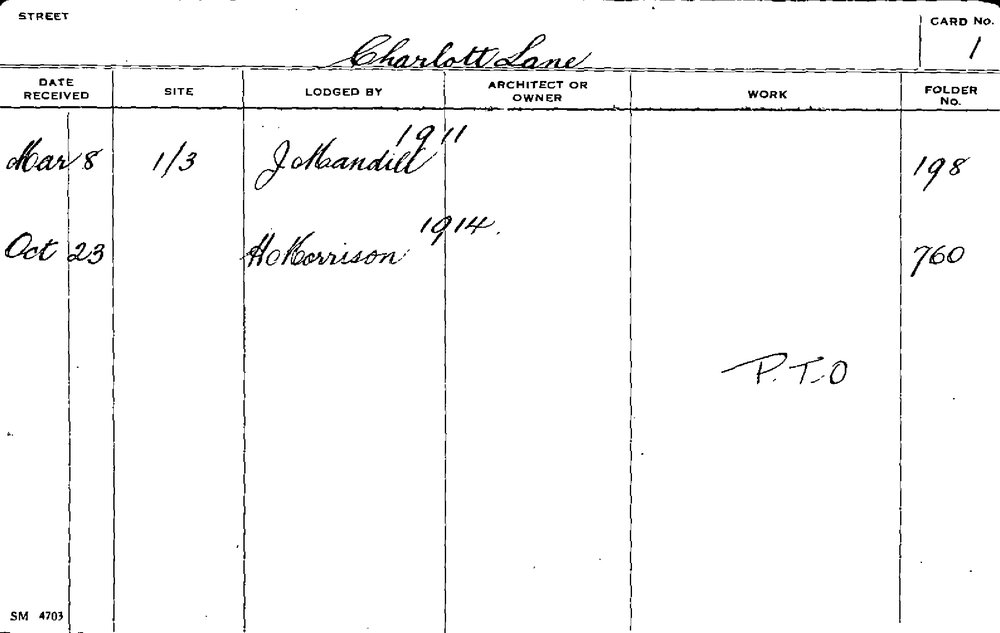 STREET
CARD No.
Charlott Lane
1
DATE RECEIVED SITE LODGED BY ARCHITECT OR OWNER WORK FOLDER No.
1911
Mar 8 1/3 J Mandill 198
1914.
Oct 23 H Morrison 760
P.T.O
SM 4703